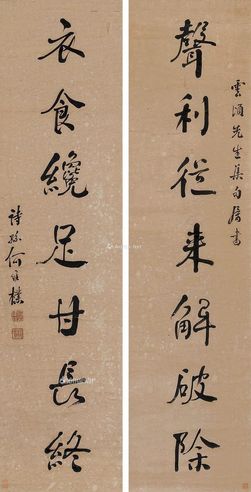 雲湄先生集句屬書
聲利從来解破除
衣食纔足甘長終
詩孫何維樸